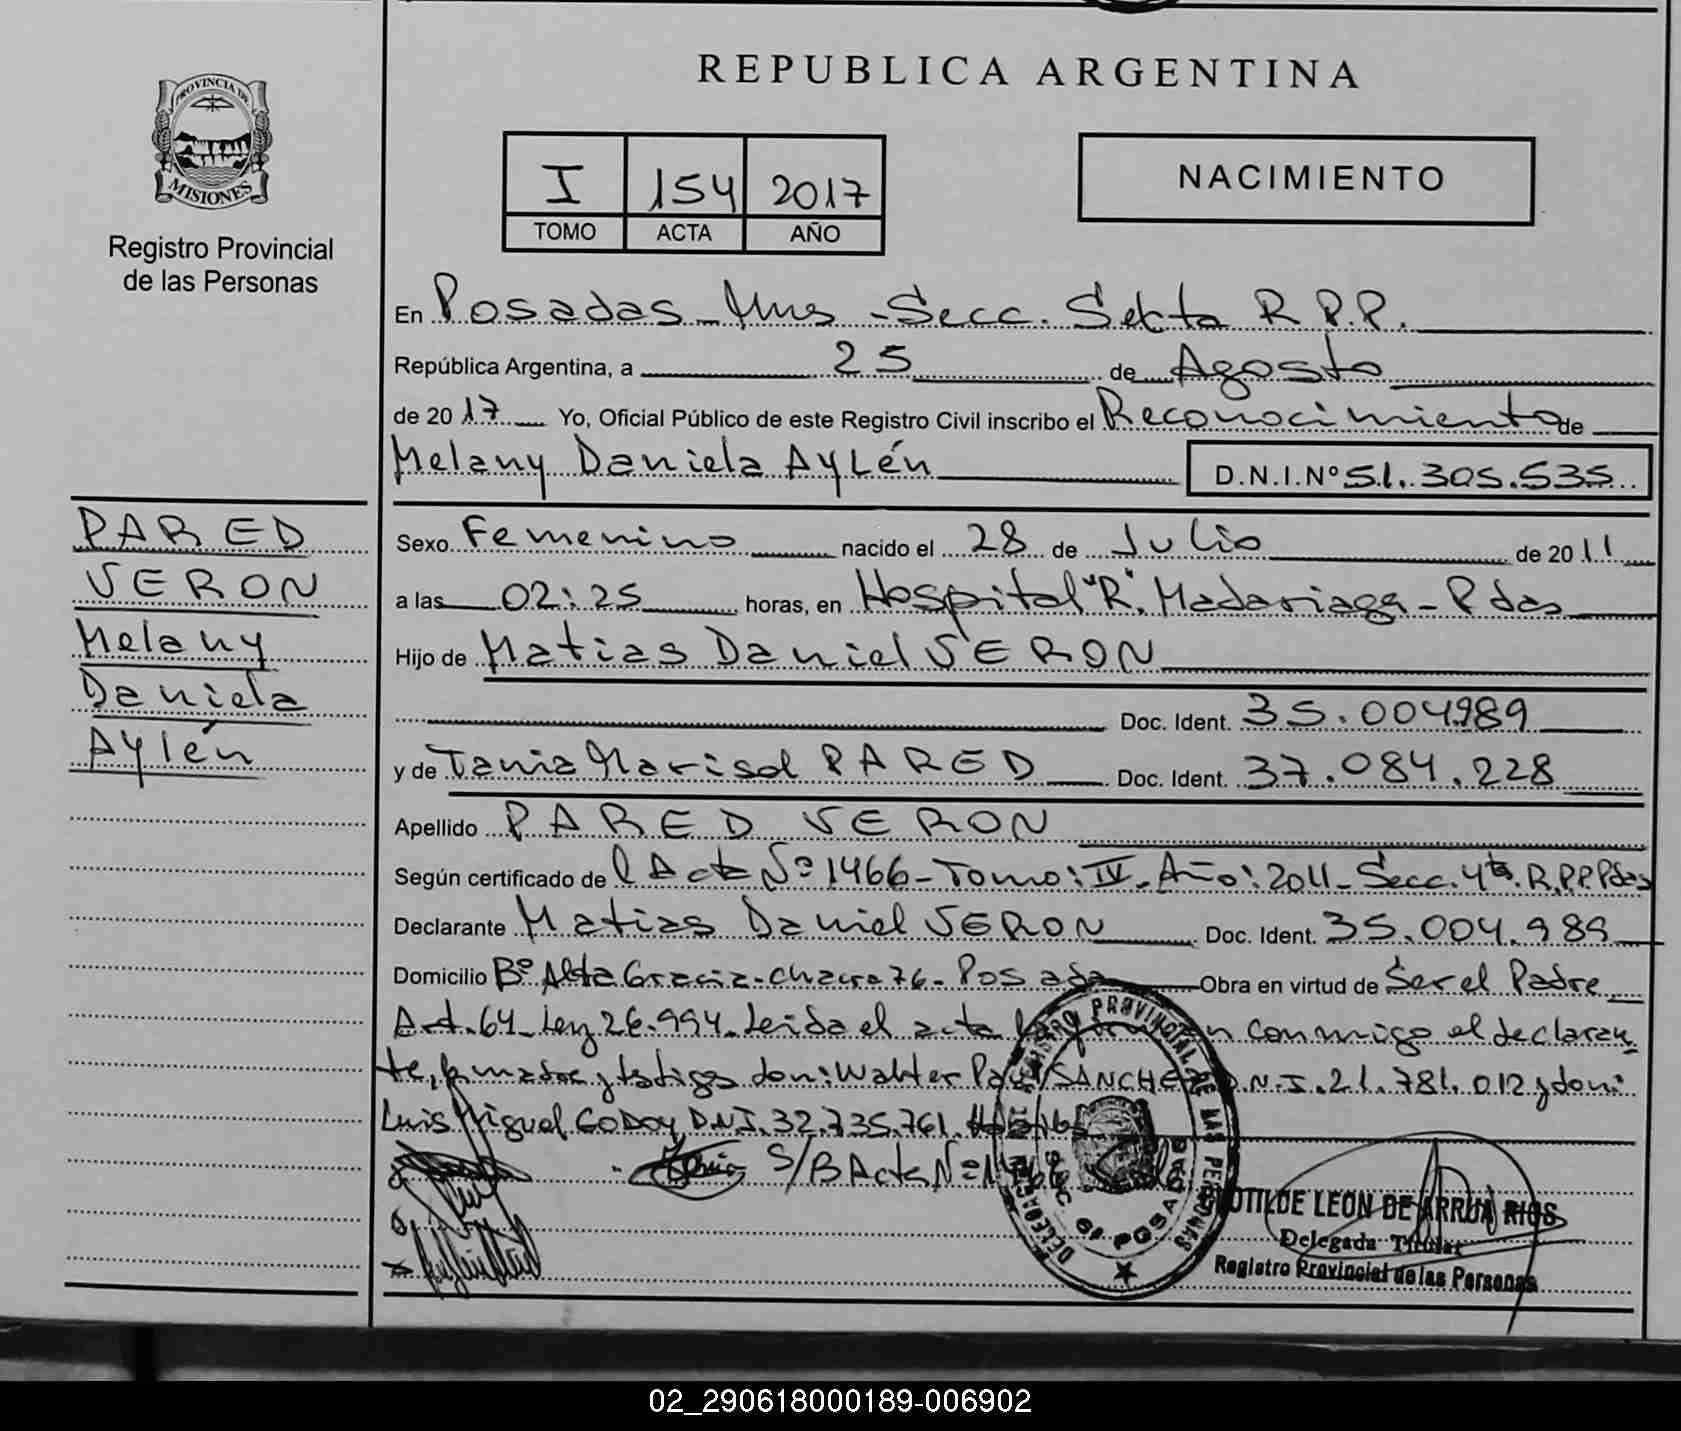 PROVINCIA DE
MISIONES
Registro Provincial
de las Personas
PARED
VERON
Melany
Daniela
Aylén
REPUBLICA ARGENTINA
I 154 2017
TOMO ACTA AÑO
NACIMIENTO
En Posadas - Mns - Secc. Sexta R.P.P.
República Argentina, a 25 de Agosto
de 2017 Yo, Oficial Público de este Registro Civil inscribo el Reconocimiento de
Melany Daniela Aylén D.N.I.Nº 51.305.535
Sexo Femenino nacido el 28 de Julio de 2011
a las 02:25 horas, en Hospital "R". Madariaga - Pdas
Hijo de Matias Daniel VERON
Doc. Ident. 35.004.989
y de Tania Marisol PARED Doc. Ident. 37.084.228
Apellido PARED VERON
Según certificado del Acta Nº 1466 - Tomo: IV - Año: 2011 - Secc. 4ta. R.P.P. Pdas
Declarante Matias Daniel VERON Doc. Ident. 35.004.989
Domicilio Bº Alta Gracia - Chacra 76 - Posadas Obra en virtud de Ser el Padre
Art. 64 Ley 26.994. Leida el acta conmigo el declaran-
te, la madre y testigos don: Walter SANCHEZ D.N.I. 21.781.012 y don:
Luis Miguel GODOY D.N.I. 32.735.761.
S/B Acta Nº 1466
REGISTRO PROVINCIAL DE LAS PERSONAS
POSADAS
CLOTILDE LEON DE ARRUA RIOS
Delegada Titular
Registro Provincial de las Personas
02_290618000189-006902